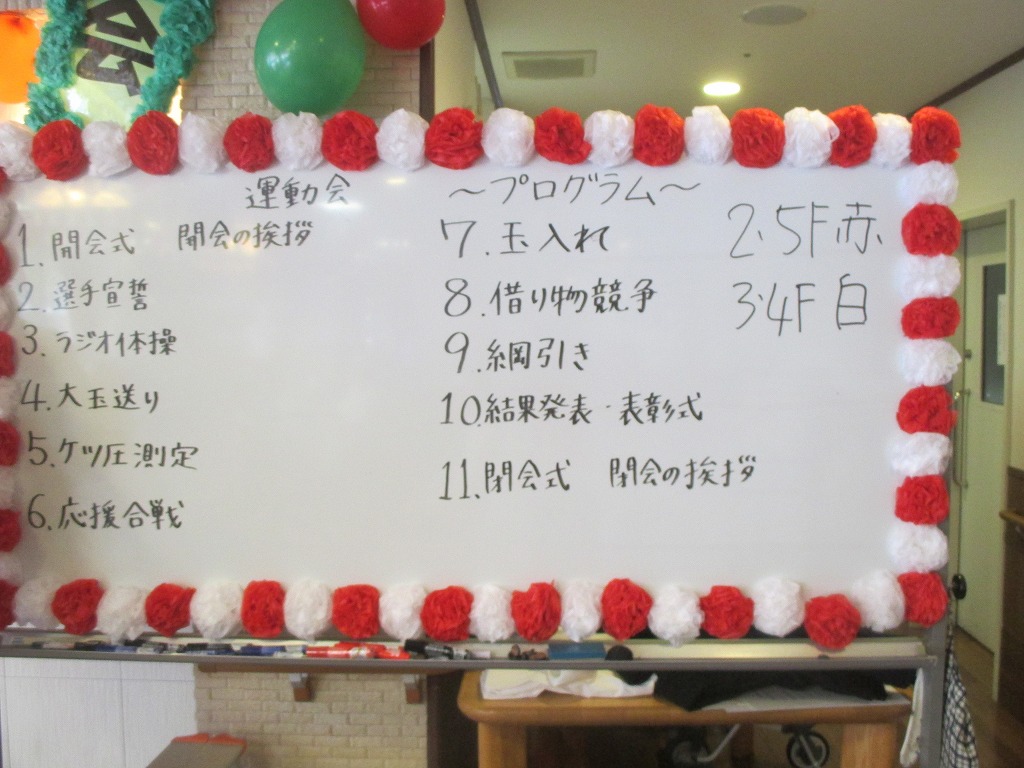 運動会 ～プログラム～
1. 開会式 開会の挨拶
2. 選手宣誓
3. ラジオ体操
4. 大玉送り
5. ケツ圧測定
6. 応援合戦
7. 玉入れ
8. 借り物競争
9. 綱引き
10. 結果発表・表彰式
11. 閉会式 閉会の挨拶
2.5F赤.
3.4F白